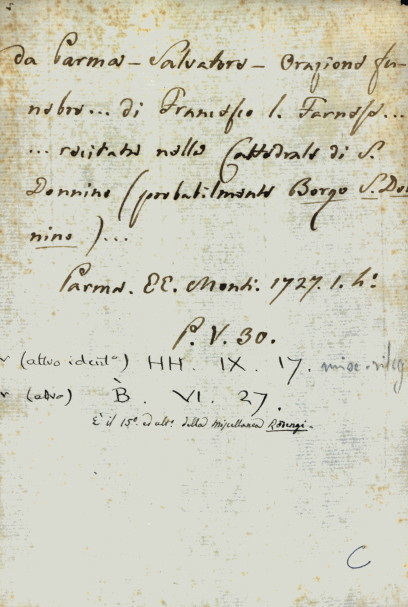 da Parma – Salvatore – Orazione fu-
nebre... di Francesco I. Farnese...
... recitata nella Cattedrale di S.
Donnino (probabilmente Borgo S. Don
nino)...
Parma. EE. Monti. 1727. 1. h°.
P. V. 30.
(altro ident°) HH. IX. 17. misc. rileg
(altro) B. VI. 27
È il 15° ed ult° della Miscellanea
C